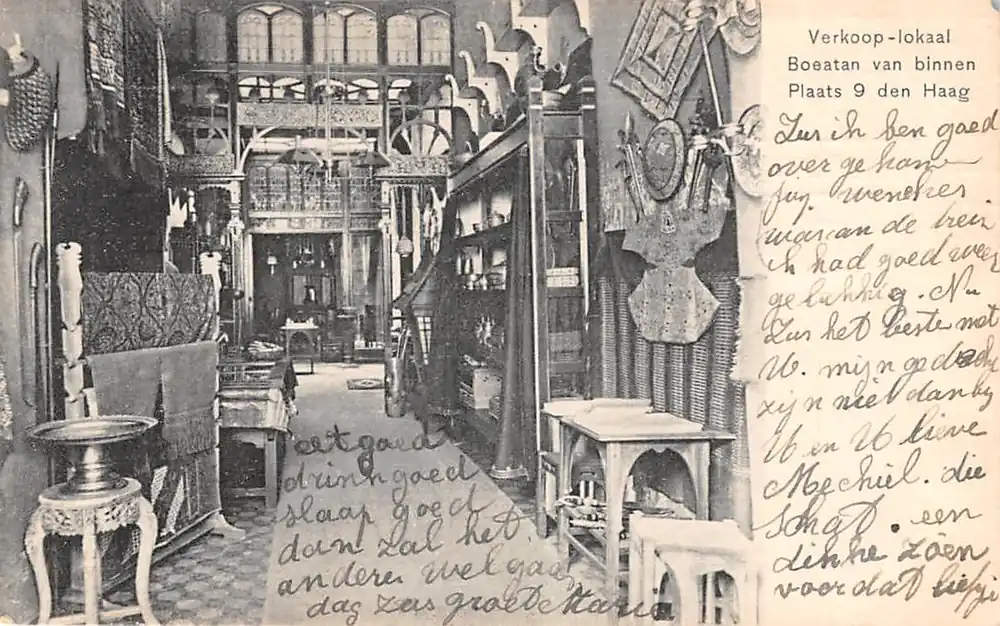 Verkoop-lokaal
Boeatan van binnen
Plaats 9 den Haag
Zus ik ben goed
over ge kom
wenches
de trein
ik had goed weer
gelukkig. Nu
Zus het beste met
U. mijn gedach
zijn niet dan by
U en U lieve
Mechiel. die
schat. een
dikke zoen
voor dat liefje
eet goed
drink goed
slaap goed
dan zal het
andere wel gaan
dag zus groet Marie